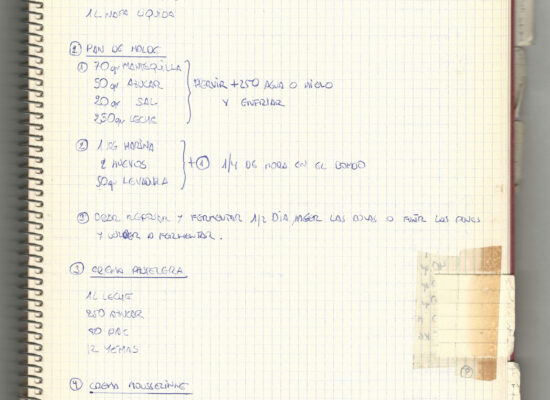 1L NATA LIQUIDA
② PAN DE MOLDE
① 70gr MANTEQUILLA
50gr AZUCAR
20gr SAL
250gr LECHE
HERVIR +250 AGUA O HIELO
Y ENFRIAR
② 1 KG HARINA
2 HUEVOS
50gr LEVADURA
+ ① 1/4 DE HORA EN EL BOMBO
③ DEJAR REPOSAR Y FERMENTAR 1/2 DIA, HACER LAS BOLAS O LAS PANES
Y VOLVER A FERMENTAR.
③ CREMA PASTELERA
1L LECHE
250 AZUCAR
80
12 YEMAS
④ CREMA MOUSSELINNE